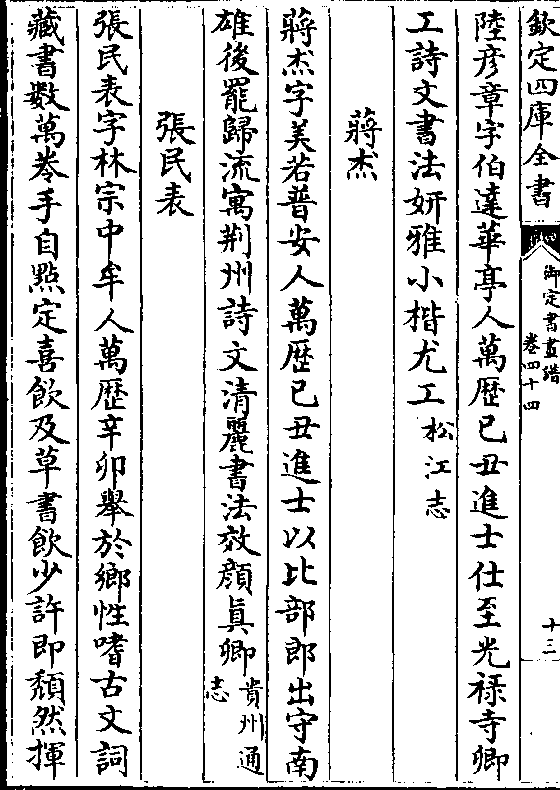 欽定四庫全書
御定書畫譜
卷四十四
十三
陸彦章字伯達華亭人萬歴己丑進士仕至光禄寺卿
工詩文書法妍雅小楷尤工松江志
蔣杰
蔣杰字美若普安人萬歴己丑進士以比部郎出守南
雄後罷歸流寓荆州詩文清麗書法效顔真卿貴州通志
張民表
張民表字林宗中牟人萬歴辛卯舉於鄉性嗜古文詞
藏書數萬卷手自點定喜飲及草書飲少許即頽然揮